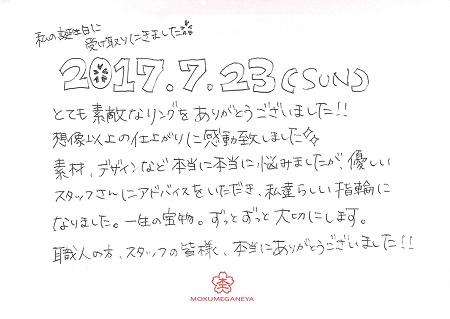 私の誕生日に
受け取りにきました
2017.7.23(SUN)
とても素敵なリングをありがとうございました!!
想像以上の仕上がりに感動致しました
素材、デザインなど本当に本当に悩みましたが、優しい
スタッフさんにアドバイスをいただき、私達らしい指輪に
なりました。一生の宝物。ずっとずっと大切にします。
職人の方、スタッフの皆様、本当にありがとうございました!!
杢
MOKUMEGANEYA